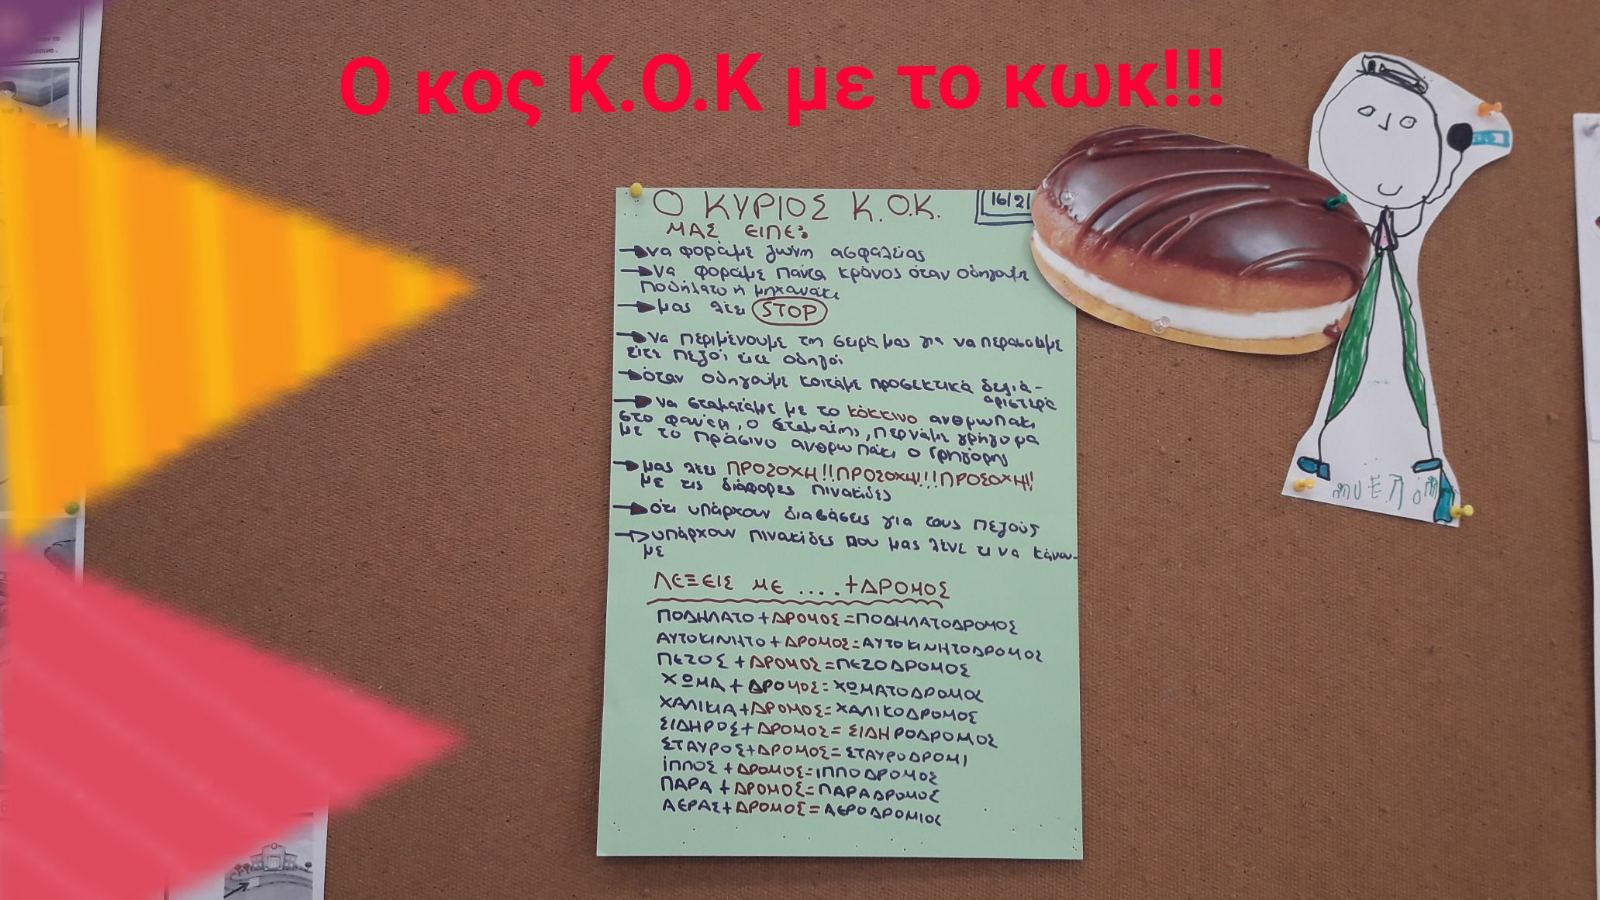 Ο κος Κ.Ο.Κ με το κωκ!!!
Ο ΚΥΡΙΟΣ Κ.Ο.Κ.
16/2
ΜΑΣ ΕΙΠΕ:
να φοράμε ζώνη ασφαλείας
να φοράμε πάντα κράνος όταν οδηγάμε
ποδήλατο ή μηχανάκι
μας λέει STOP
να περιμένουμε τη σειρά μας για να περάσουμε
είτε πεζοί είτε οδηγοί
όταν οδηγούμε κοιτάμε προσεκτικά δεξιά-
αριστερά
να σταματάμε με το κόκκινο ανθρωπάκι
στο φανάρι, ο Σταμάτης, περνάμε γρήγορα
με το πράσινο ανθρωπάκι ο Γρηγόρης
μας λέει ΠΡΟΣΟΧΗ!!ΠΡΟΣΟΧΗ!!!ΠΡΟΣΟΧΗ!!
με τις διάφορες πινακίδες
ότι υπάρχουν διαβάσεις για τους πεζούς
υπάρχουν πινακίδες που μας λένε τι να κάνου-
με
ΛΕΞΕΙΣ ΜΕ ....+ΔΡΟΜΟΣ
ΠΟΔΗΛΑΤΟ+ΔΡΟΜΟΣ=ΠΟΔΗΛΑΤΟΔΡΟΜΟΣ
ΑΥΤΟΚΙΝΗΤΟ+ΔΡΟΜΟΣ=ΑΥΤΟΚΙΝΗΤΟΔΡΟΜΟΣ
ΠΕΖΟΣ+ΔΡΟΜΟΣ=ΠΕΖΟΔΡΟΜΟΣ
ΧΩΜΑ+ΔΡΟΜΟΣ=ΧΩΜΑΤΟΔΡΟΜΟΣ
ΧΑΛΙΚΙΑ+ΔΡΟΜΟΣ=ΧΑΛΙΚΟΔΡΟΜΟΣ
ΣΙΔΗΡΟΣ+ΔΡΟΜΟΣ=ΣΙΔΗΡΟΔΡΟΜΟΣ
ΣΤΑΥΡΟΣ+ΔΡΟΜΟΣ=ΣΤΑΥΡΟΔΡΟΜΙ
ΙΠΠΟΣ+ΔΡΟΜΟΣ=ΙΠΠΟΔΡΟΜΟΣ
ΠΑΡΑ+ΔΡΟΜΟΣ=ΠΑΡΑΔΡΟΜΟΣ
ΑΕΡΑΣ+ΔΡΟΜΟΣ=ΑΕΡΟΔΡΟΜΙΟ